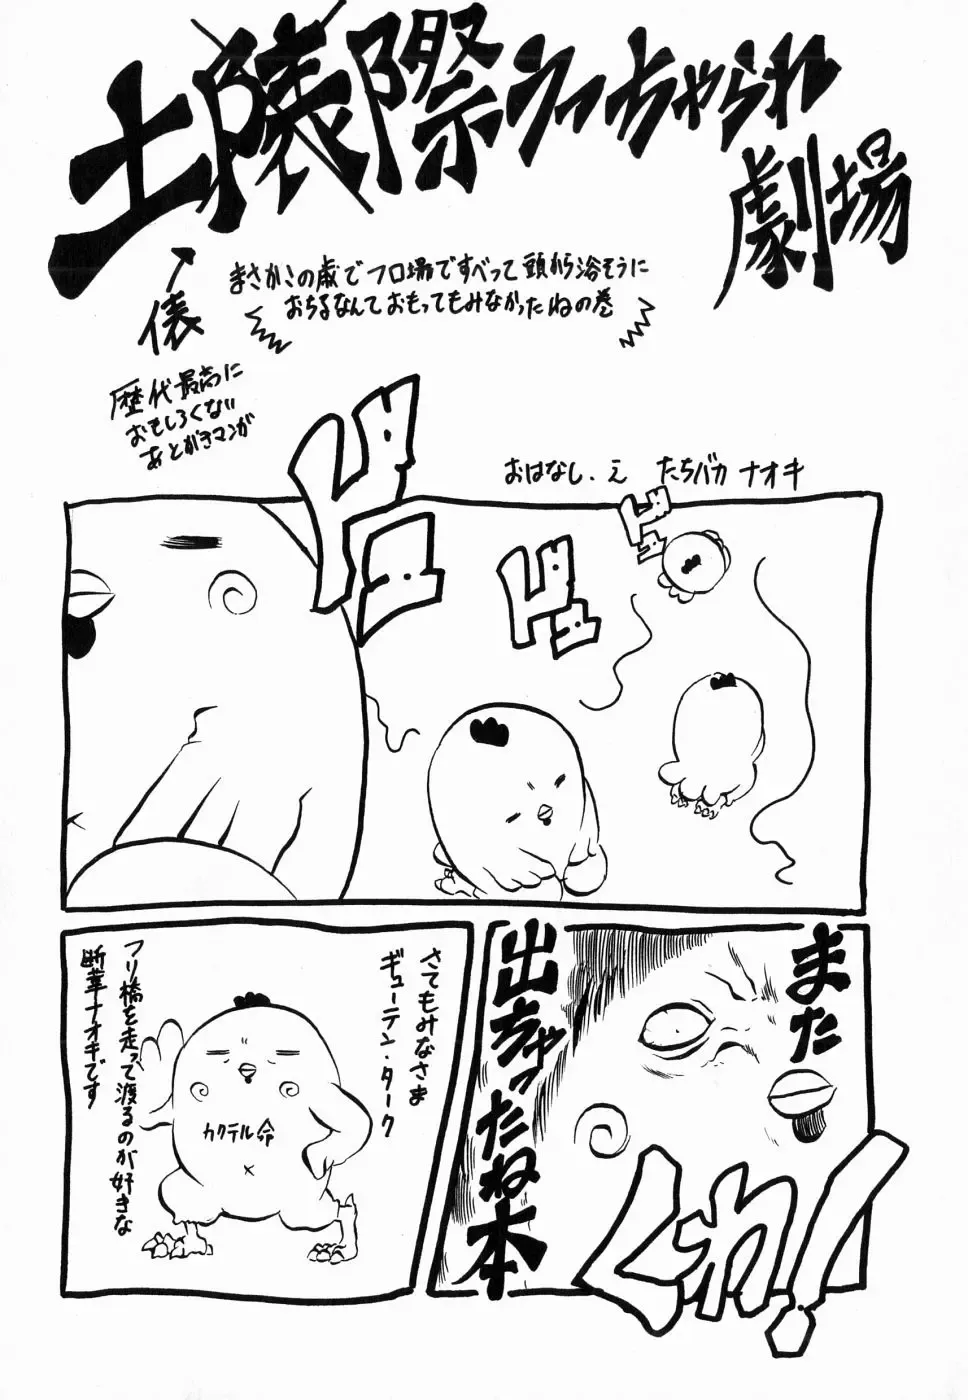 土俵際うっちゃられ
劇場
俵
まさかこの歳でフロ場ですべって頭から浴そうに
おちるなんておもってもみなかったねの巻
歴代最高に
おもしろくない
あとがきマンガ
おはなし.え たちバカ ナオキ
ドドドドドド
また
出ちゃったね本
くわっ!
さてもみなさま
ギューテン・ターク
カクテル命
フリ橋を走って渡るのが好きな
断華ナオキです